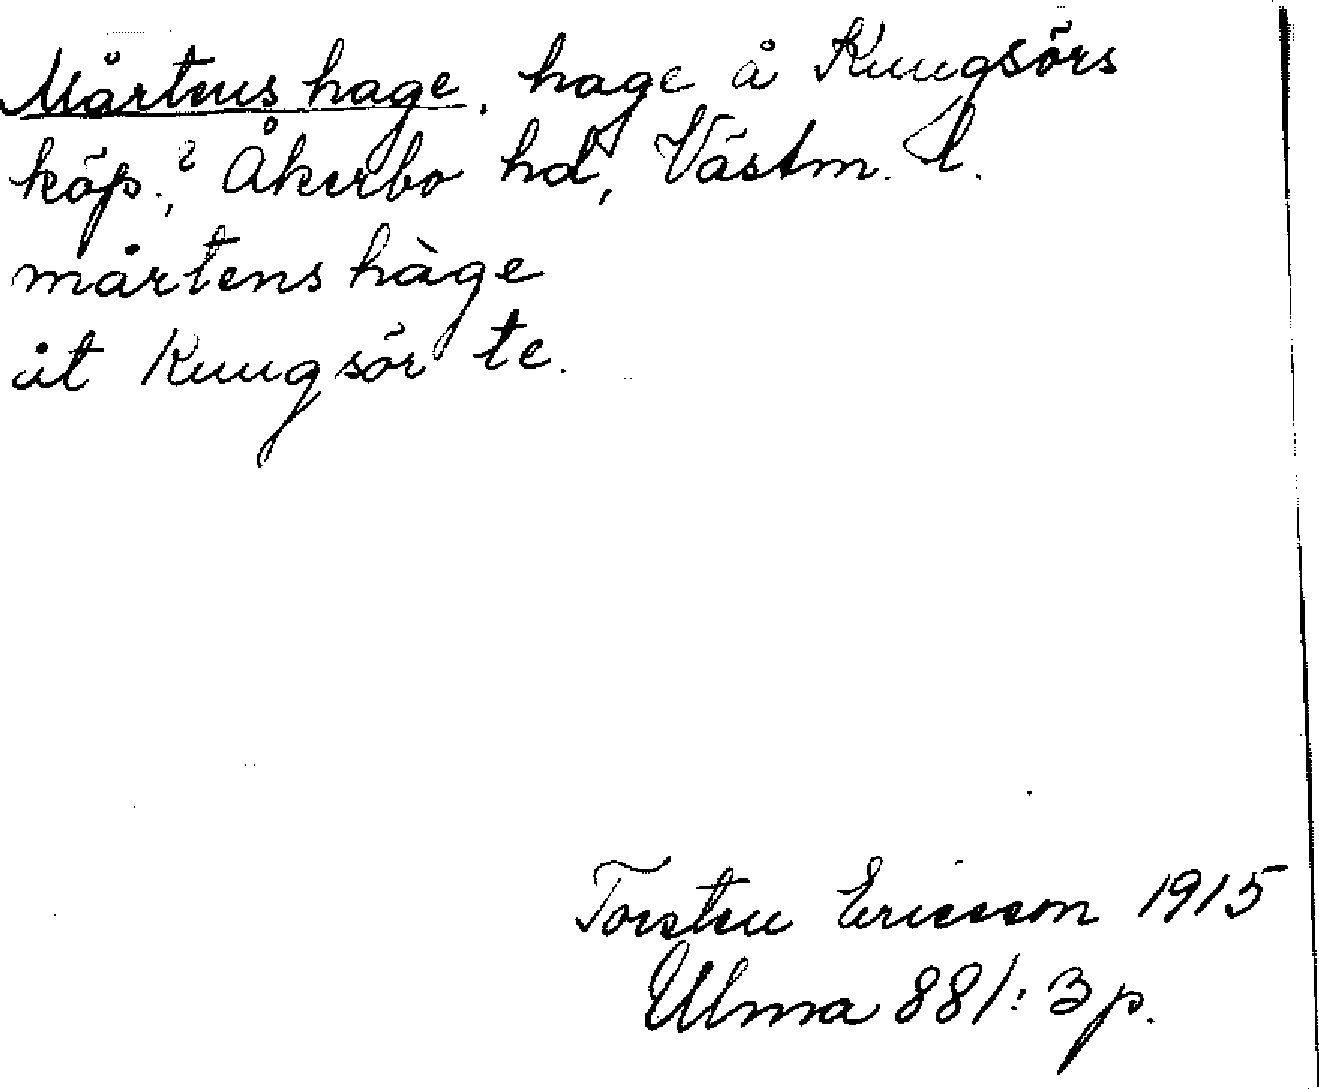 Mårtens hage, hage å Kungsörs
köp.,? Åkerbo hd, Västm. l.
mårtens hàge
åt Kungsör te.
Torsten Ericsson 1915
Ulma 881: 3 p.